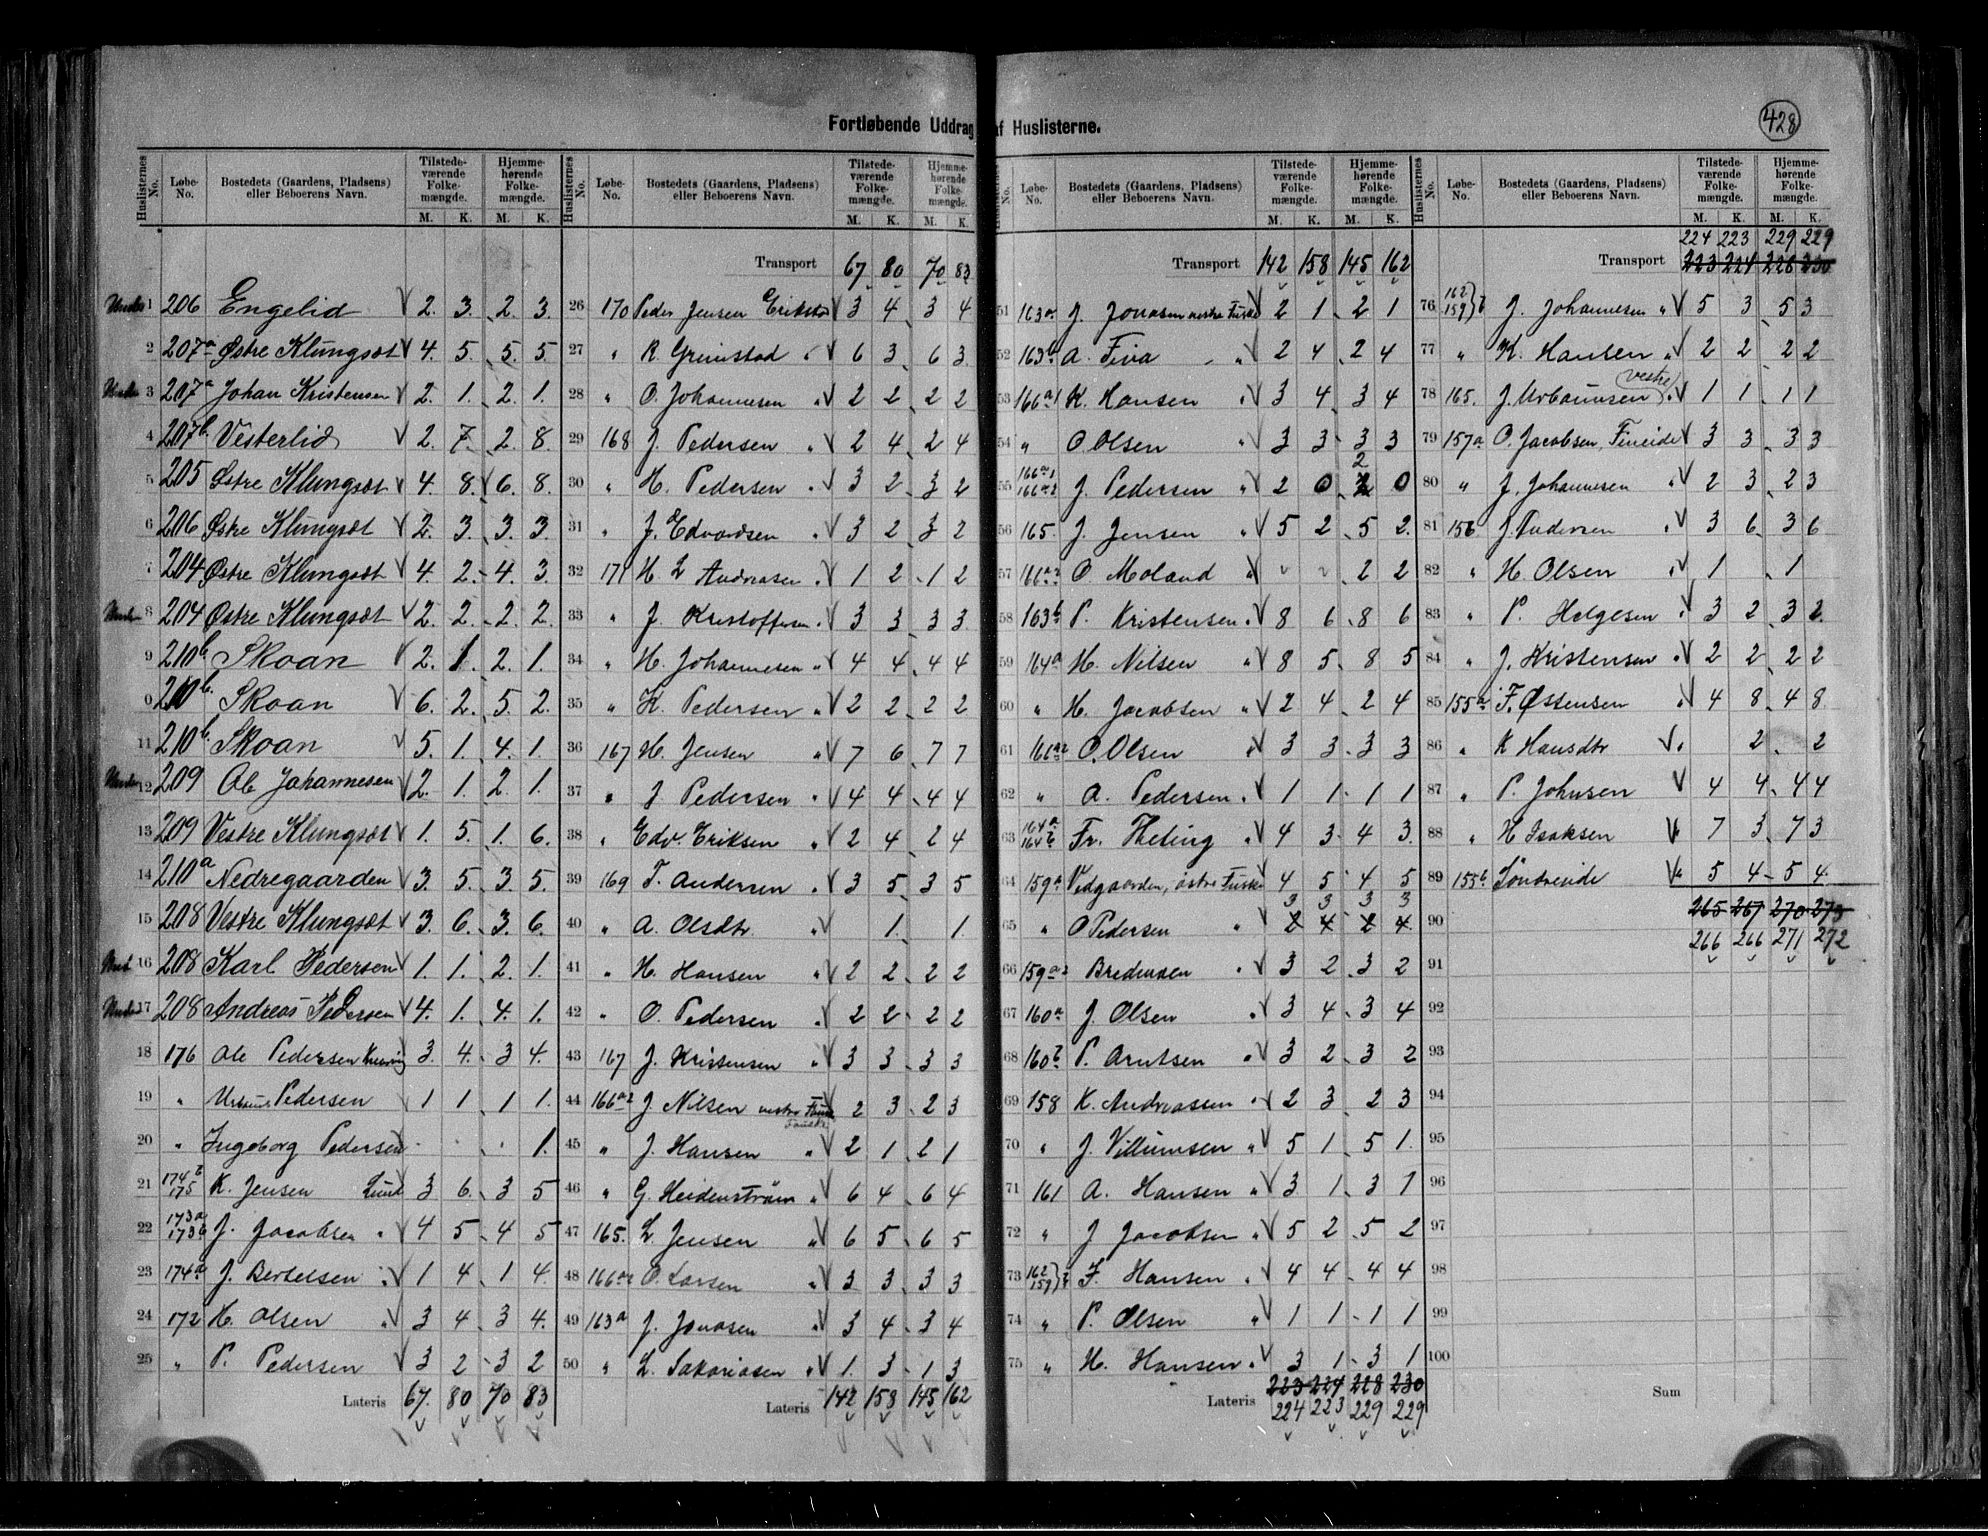 Fortløbende Uddrag af Huslisterne.
428
Huslisternes No. Løbe-No. Bostedets (Gaardens, Pladsens) eller Beboerens Navn. Tilstedeværende Folkemængde. M. K. Hjemmehørende Folkemængde. M. K.
1 206 Engelid 2. 3. 2. 3.
2 207a Østre Klungsæt 4. 5. 5. 5.
3 207a Johan Kristensen 2. 1. 2. 1.
4 207b Vesterlid 2. 7. 2. 8.
5 205 Østre Klungsæt 4. 8. 6. 8.
6 206 Østre Klungsæt 2. 3. 3. 3.
7 204 Østre Klungsæt 4. 2. 4. 3.
8 204 Østre Klungsæt 2. 2. 2. 2.
9 210b Skoan 2. 1. 2. 1.
0 210b. Skoan 6. 2. 5. 2.
11 210b. Skoan 5. 1. 4. 1.
12 209 Ole Johannesen 2. 1. 2. 1.
13 209 Vestre Klungsæt 1. 5. 1. 6.
14 210a Nedregaarden 3. 5. 3. 5.
15 208 Vestre Klungsæt 3. 6. 3. 6.
16 208 Karl Pedersen 1. 1. 2. 1.
17 208 Andreas Pedersen 4. 1. 4. 1.
18 176 Ole Pedersen 3. 4. 3 4.
19 " Pedersen 1 1 1 1.
20 " Ingeborg Pedersen . . . 1.
21 174b 175 K. Jensen Lund 3 6. 3 5
22 173a 173b J. Jacobsen " 4 5 4 5
23 174a J. Bertelsen " 1 4 1 4.
24 172 H. Olsen " 3 4 3 4.
25 " P. Pedersen 3 2 3 2
Lateris 67. 80 70 83
Huslisternes No. Løbe-No. Bostedets (Gaardens, Pladsens) eller Beboerens Navn. Tilstedeværende Folkemængde. M. K. Hjemmehørende Folkemængde. M. K.
Transport 67 80 70 83
26 170 Peder Jensen Erikstad 3 4 3 4
27 " R. Grimstad " 6 3 6 3
28 " O. Johannesen " 2 2 2 2
29 168 J. Pedersen " 2 4 2 4
30 " H. Pedersen " 3 2 3 2
31 " J. Edvardsen " 3 2 3 2
32 171 H L Andreasen " 1 2 1 2
33 " J. Kristoffersen " 3 3 3 3
34 " H. Johannesen " 4 4 4 4
35 " K. Pedersen " 2 2 2 2
36 167 H. Jensen " 7 6 7 7
37 " J Pedersen " 4 4 4 4
38 " Edv. Eriksen " 2 4 2 4
39 169 T. Andersen " 3 5 3 5
40 " A. Olsdtr " 1. 1.
41 " H. Hansen " 2 2 2 2
42 " O. Pedersen " 2 2 2 2
43 167 J. Kristensen " 3 3 3 3
44 166a2 J Nilsen vestre Fauske 2 3 2 3
45 " J. Hansen " 2 1 2 1
46 " G. Heidenstrøm " 6 4 6 4
47 165. L. Jensen " 6 5 6 5
48 166a2 O. Larsen " 3 3 3 3
49 163a J. Jonasen " 3 4 3 4
50 " L. Sakariasen " 1. 3 1 3
Lateris 142 158 145 162
No. Løbe-No. Bostedets (Gaardens, Pladsens) eller Beboerens Navn. Tilstedeværende Folkemængde. M. K. Hjemmehørende Folkemængde. M. K.
Transport 142 158 145 162
51 163a J. Jonasen vestre Fuske 2 1 2 1
52 163b A. Fiva " 2 4 2 4
53 166a1 K. Hansen " 3 4 3 4
54 " O Olsen " 3 3 3 3
55 166a1 166a2 J. Pedersen " 2 0 2 0
56 165. J. Jensen " 5 2 5 2.
57 166a2 O. Moland " 2 2
58 163b P. Kristensen " 8 6 8 6
59 164a H. Nilsen " 8 5 8 5
60 " H. Jacobsen " 2 4 2 4
61 166a2 O. Olsen " 3 3 3 3
62 " A. Pedersen " 1 1 1 1
63 164a 164b Fr. Heting " 4 3 4 3.
64 159a Vedgaarden, østre Fuske 4 5 4 5
3 3 3 3
65 " O Pedersen " 2 4 2 4
66 159a2 Bredmoen " 3 2 3 2
67 160a J. Olsen " 3 4 3 4
68 160b P. Arntsen " 3 2 3 2
69 158 K. Andreassen " 2 3 2 3
70 " J. Villumsen " 5 1 5 1.
71 161 A. Hansen " 3 1 3 1
72 " J Jacobsen " 5 2 5 2
73 162 159b F. Hansen " 4 4 4 4
74 " P. Olsen " 1 1 1 1
75 " H. Hansen " 3 1 3 1
Lateris 223 224 228 230
224 223 229 229
Huslisternes No. Løbe-No. Bostedets (Gaardens, Pladsens) eller Beboerens Navn. Tilstedeværende Folkemængde. M. K. Hjemmehørende Folkemængde. M. K.
224 223 229 229
Transport 223 224 228 230
76 162 159b J. Johannesen " 5 3 5 3
77 " K. Hansen " 2 2 2 2
78 165. J. Urbanusen vestre " 1 1 1 1
79 157a O. Jacobsen, Fineide 3 3 3 3
80 " J. Johannesen " 2 3 2 3
81 156 J. Pedersen " 3 6 3 6
82 " H. Olsen " 1 1
83 " P. Helgesen " 3 2 3 2.
84 " J. Kristensen " 2 2 2 2
85 155a F. Østensen " 4 8 4 8
86 " K Hansdtr 2 2
87 " P. Johnsen 4 4 4 4
88 " H Isaksen 7 3 7 3
89 155b 5 4 5 4
265 267 270 273
90
266 266 271 272
91
92
93
94
95
96
97
98
99
100
Sum